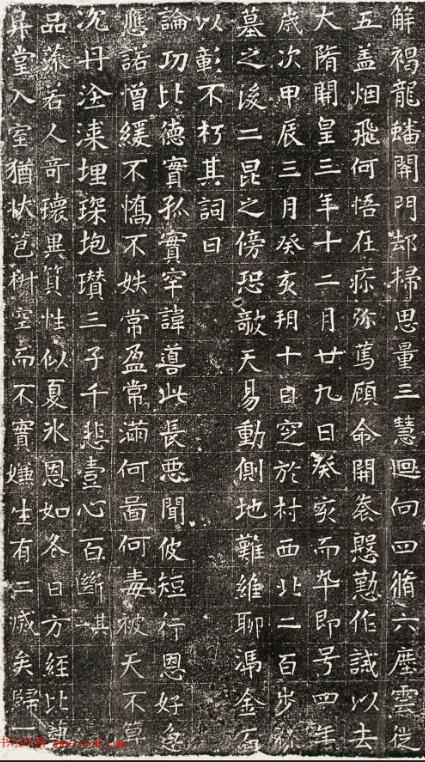 解褐龍蟠開門却掃思量三慧迴向四脩六塵雲從
五盖烟飛何悟在疹弥萬顧命開養慇懃作誡以去
大隋開皇三年十二月廿九日癸亥而卒即号四年
歲次甲辰三月癸亥朔十日窆於村西北二百步
墓之後二昆之傍恐敧天易動側地難維聊馮金石
以彰不朽其詞曰
論功比德實孤實罕諱善此長惡聞彼短行恩好急
應諾憎緩不憍不妷常盈常滿何啚何毒被天不筭
沉丹淦湅埋琛抱瓚三子千悲壹心百斷其一
品藻若人奇瓌異質性似夏氷恩如冬日方經比藝
昇堂入室猶狀苞樹空而不實嫌生有二咸矣歸一
书法欣赏 www.yac8.com